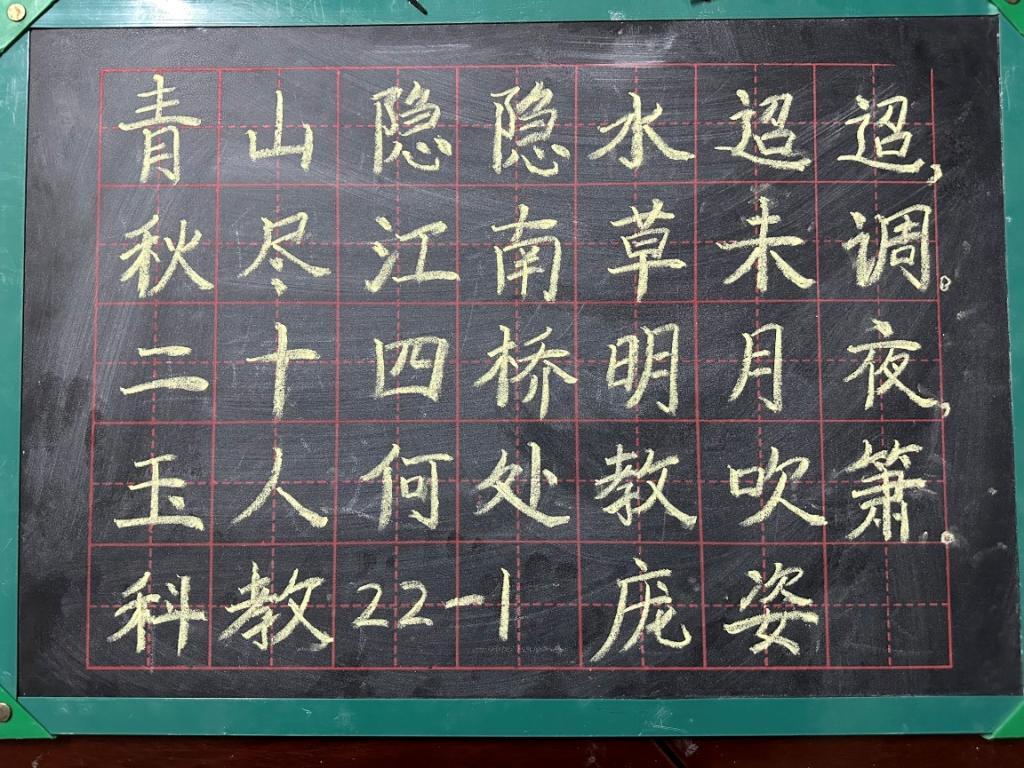 青山隐隐水迢迢,
秋尽江南草未调。
二十四桥明月夜,
玉人何处教吹箫。
科教22-1 庞姿